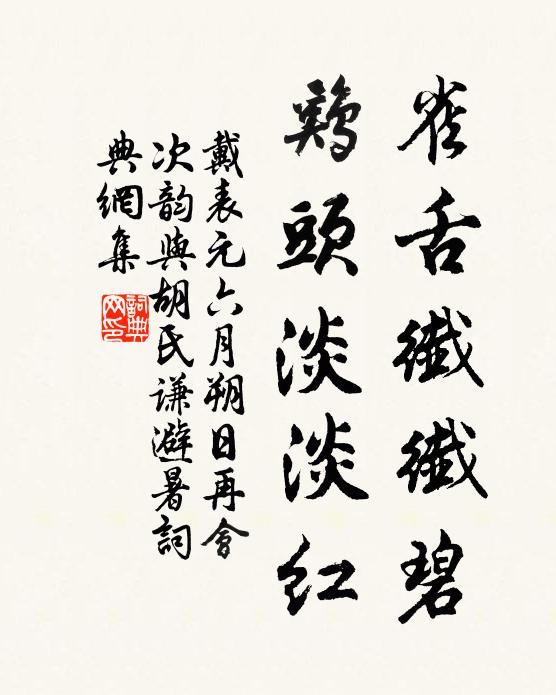 雀舌纖纖碧
鷄頭淡淡紅
戴表元六月朔日再會
次韵與胡氏谦避暑詞
典網集
詞典
网印